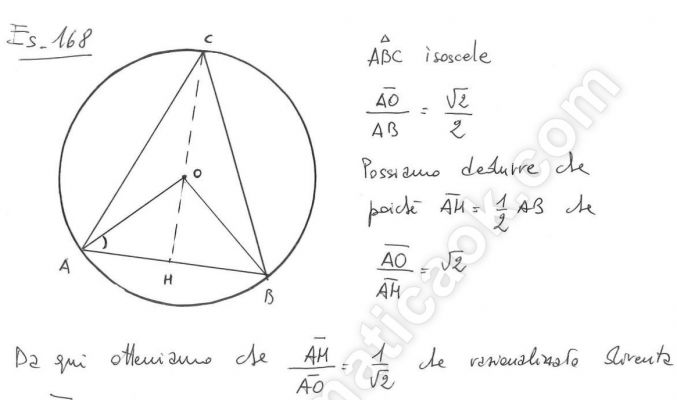 Es. 168
C
O
A
H
B
ABC isoscele
AO/AB = √2/2
Possiamo dedurre che
poiché AH = 1/2 AB che
AO/AH = √2
Da qui otteniamo che AH/AO = 1/√2 che razionalizzato diventa
maticaok.com